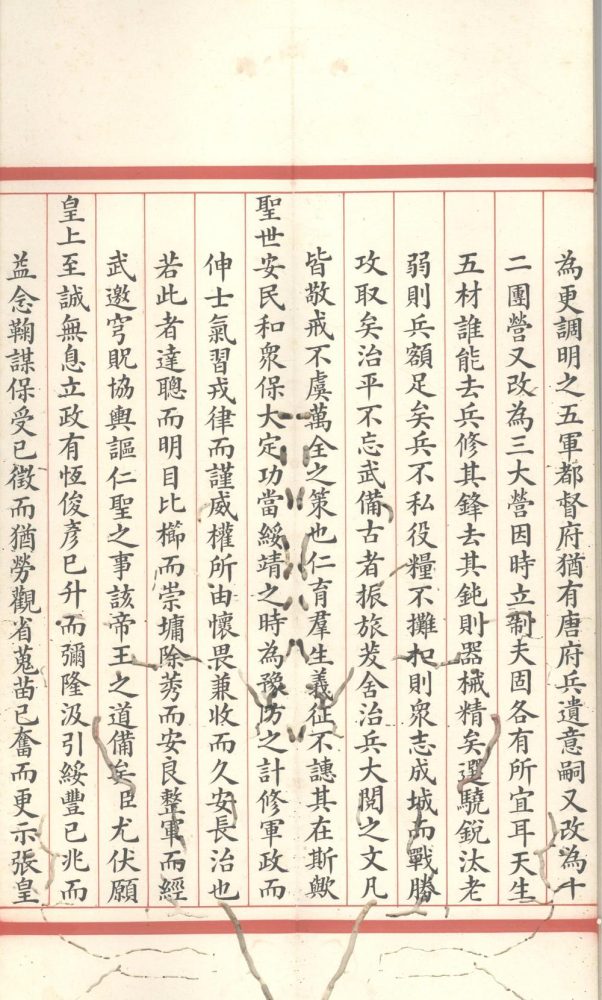 為更調明之五軍都督府猶有唐府兵遺意嗣又改為十
二團營又改為三大營因時立制夫固各有所宜耳天生
五材誰能去兵修其鋒去其鈍則器械精矣選驍銳汰老
弱則兵額足矣兵不私役糧不攤扣則眾志成城而戰勝
攻取矣治平不忘武備古者振旅茇舍治兵大閱之文凡
皆敬戒不虞萬全之策也仁育羣生義征不譓其在斯歟
聖世安民和眾保大定功當綏靖之時為豫防之計修軍政而
伸士氣習戎律而謹威權所由懷畏兼收而久安長治也
若此者達聰而明目比櫛而崇墉除莠而安良整軍而經
武邀穹貺協輿謳仁聖之事該帝王之道備矣臣尤伏願
皇上至誠無息立政有恆俊彥已升而彌隆汲引綏豐已兆而
益念鞠謀保受已徵而猶勞觀省蒐苗已奮而更示張皇